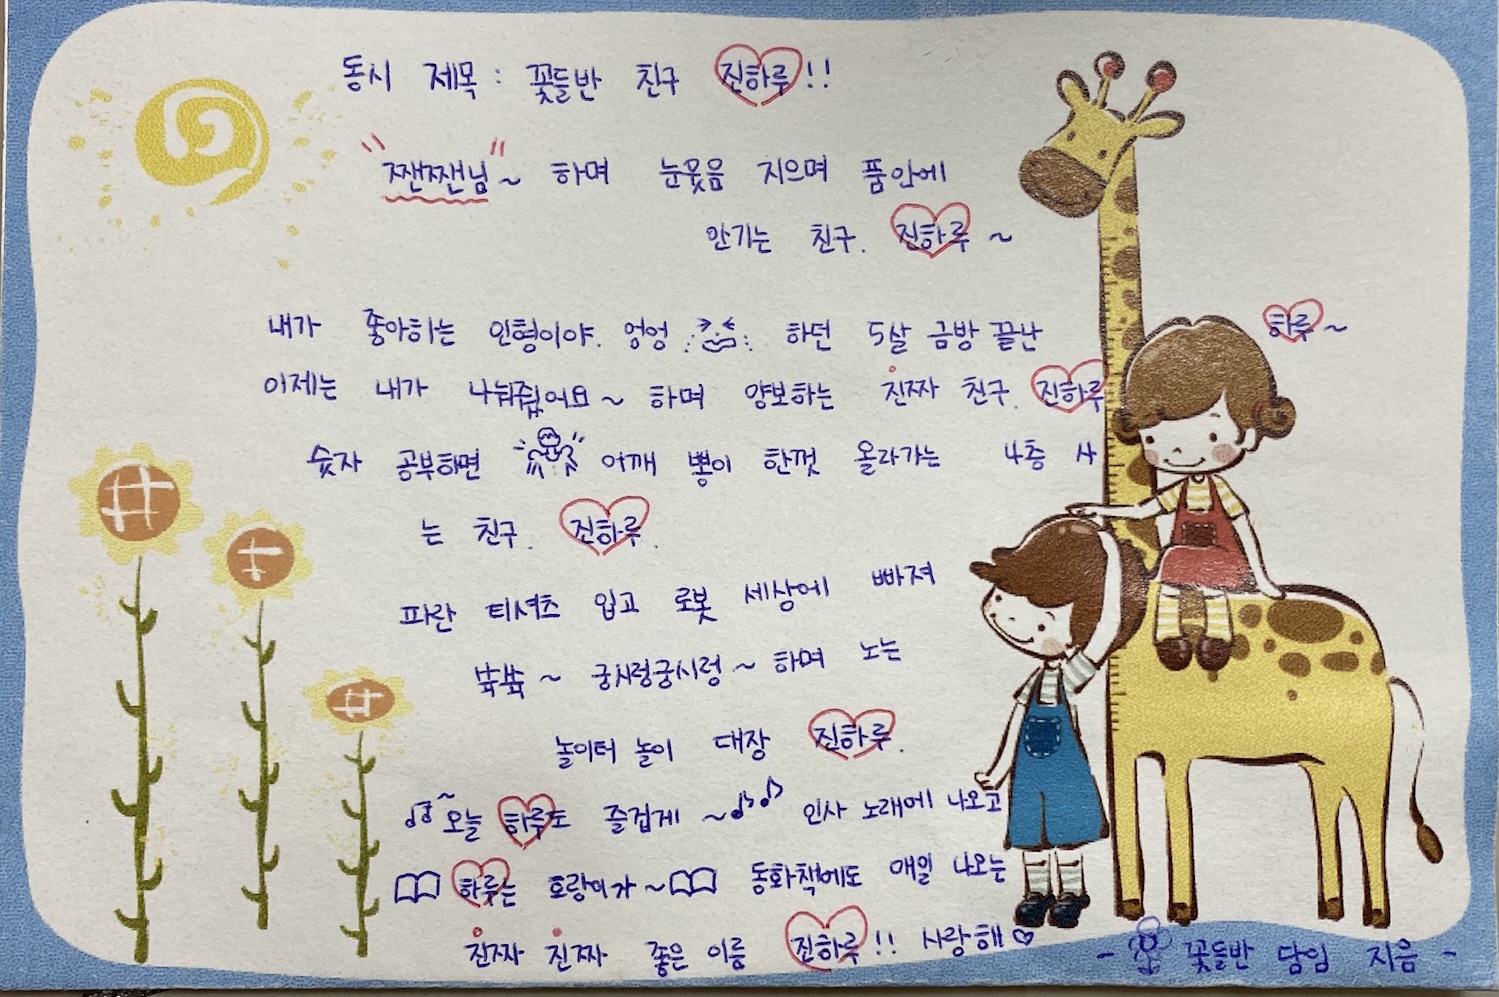 동시 제목 : 꽃들반 친구 진하루!!
"짼짼님"~ 하며 눈웃음 지으며 품안에
안기는 친구. 진하루 ~
하루~
내가 좋아하는 인형이야. 엉엉 하던 5살 금방 끝난
이제는 내가 나눠줬어요~ 하며 양보하는 진짜 친구. 진하루
숫자 공부하면 어깨 뽕이 한껏 올라가는 4층 사
는 친구. 진하루.
파란 티셔츠 입고 로봇 세상에 빠져
쓩쓩 ~ 궁시렁궁시렁 ~ 하며 노는
놀이터 놀이 대장 진하루.
♩♬~오늘 하루도 즐겁게 ~♪♪ 인사 노래에 나오고
하룻는 호랑이가 ~ 동화책에도 매일 나오는
진짜 진짜 좋은 이름 진하루!! 사랑해♡
- 꽃들반 담임 지음 -